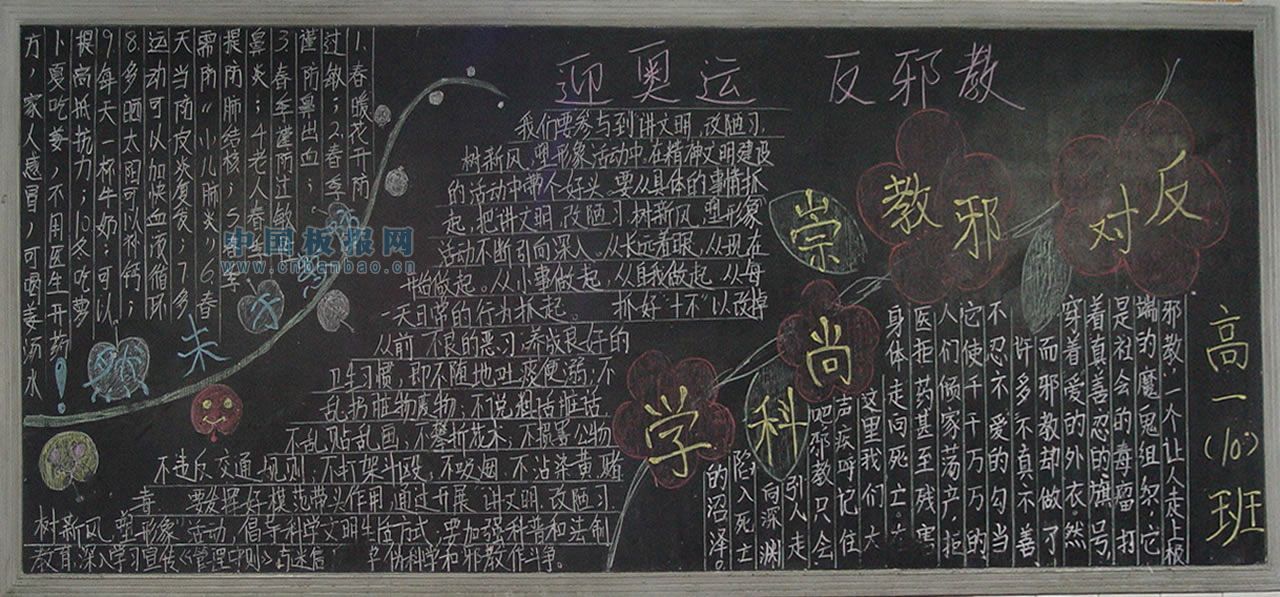 迎奥运 反邪教
我们要参与到讲文明,改陋习,
树新风,塑形象活动中,在精神文明建设
的活动中带个好头,要从具体的事情抓
起,把讲文明,改陋习,树新风,塑形象
活动不断引向深入。从长远着眼,从现在
开始做起。从小事做起,从自我做起,从每
一天日常的行为抓起。 抓好"十不"以改掉
从前不良的恶习,养成良好的
卫生习惯,即不随地吐痰便溺;不
乱扔脏物废物;不说粗话脏话
不乱贴乱画;不攀折花木;不损害公物
不违反交通规则;不打架斗殴,不吸烟,不沾染黄赌
毒。要发挥好模范带头作用,通过开展"讲文明,改陋习
树新风,塑形象"活动,倡导科学文明生活方式;要加强科普和法制
教育,深入学习宣传《管理守则》与迷信 伪科学和邪教作斗争。
1.春暖花开防
过敏;2.春季
谨防鼻出血;
3.春季谨防过敏
鼻炎;4老人春季
提防肺结核;5.春季
需防"小儿肺炎";6.春
天当防皮炎复发;7.多
运动可以加快血液循环
8.多晒太阳可以补钙;
9.每天一杯牛奶,可以
提高抵抗力;10.冬吃萝
卜夏吃姜,不用医生开药
方,家人感冒,可喝姜汤水
!
中国板报网
www.cnbanbao.cn
反对
邪教
崇尚
科学
邪教,一个让人走上极
端的魔鬼组织,它
是社会的毒瘤,打
着真善忍的旗号,
穿着爱的外衣。然
而邪教却做了
许多不真不善
不忍不爱的勾当
它使千千万万的
人们倾家荡产,拒
医拒药甚至残害
身体走向死亡。在
这里我们大
声疾呼记住
吧邪教只会
引人走
向深渊
陷入死亡
的沼泽。
高一(10)班